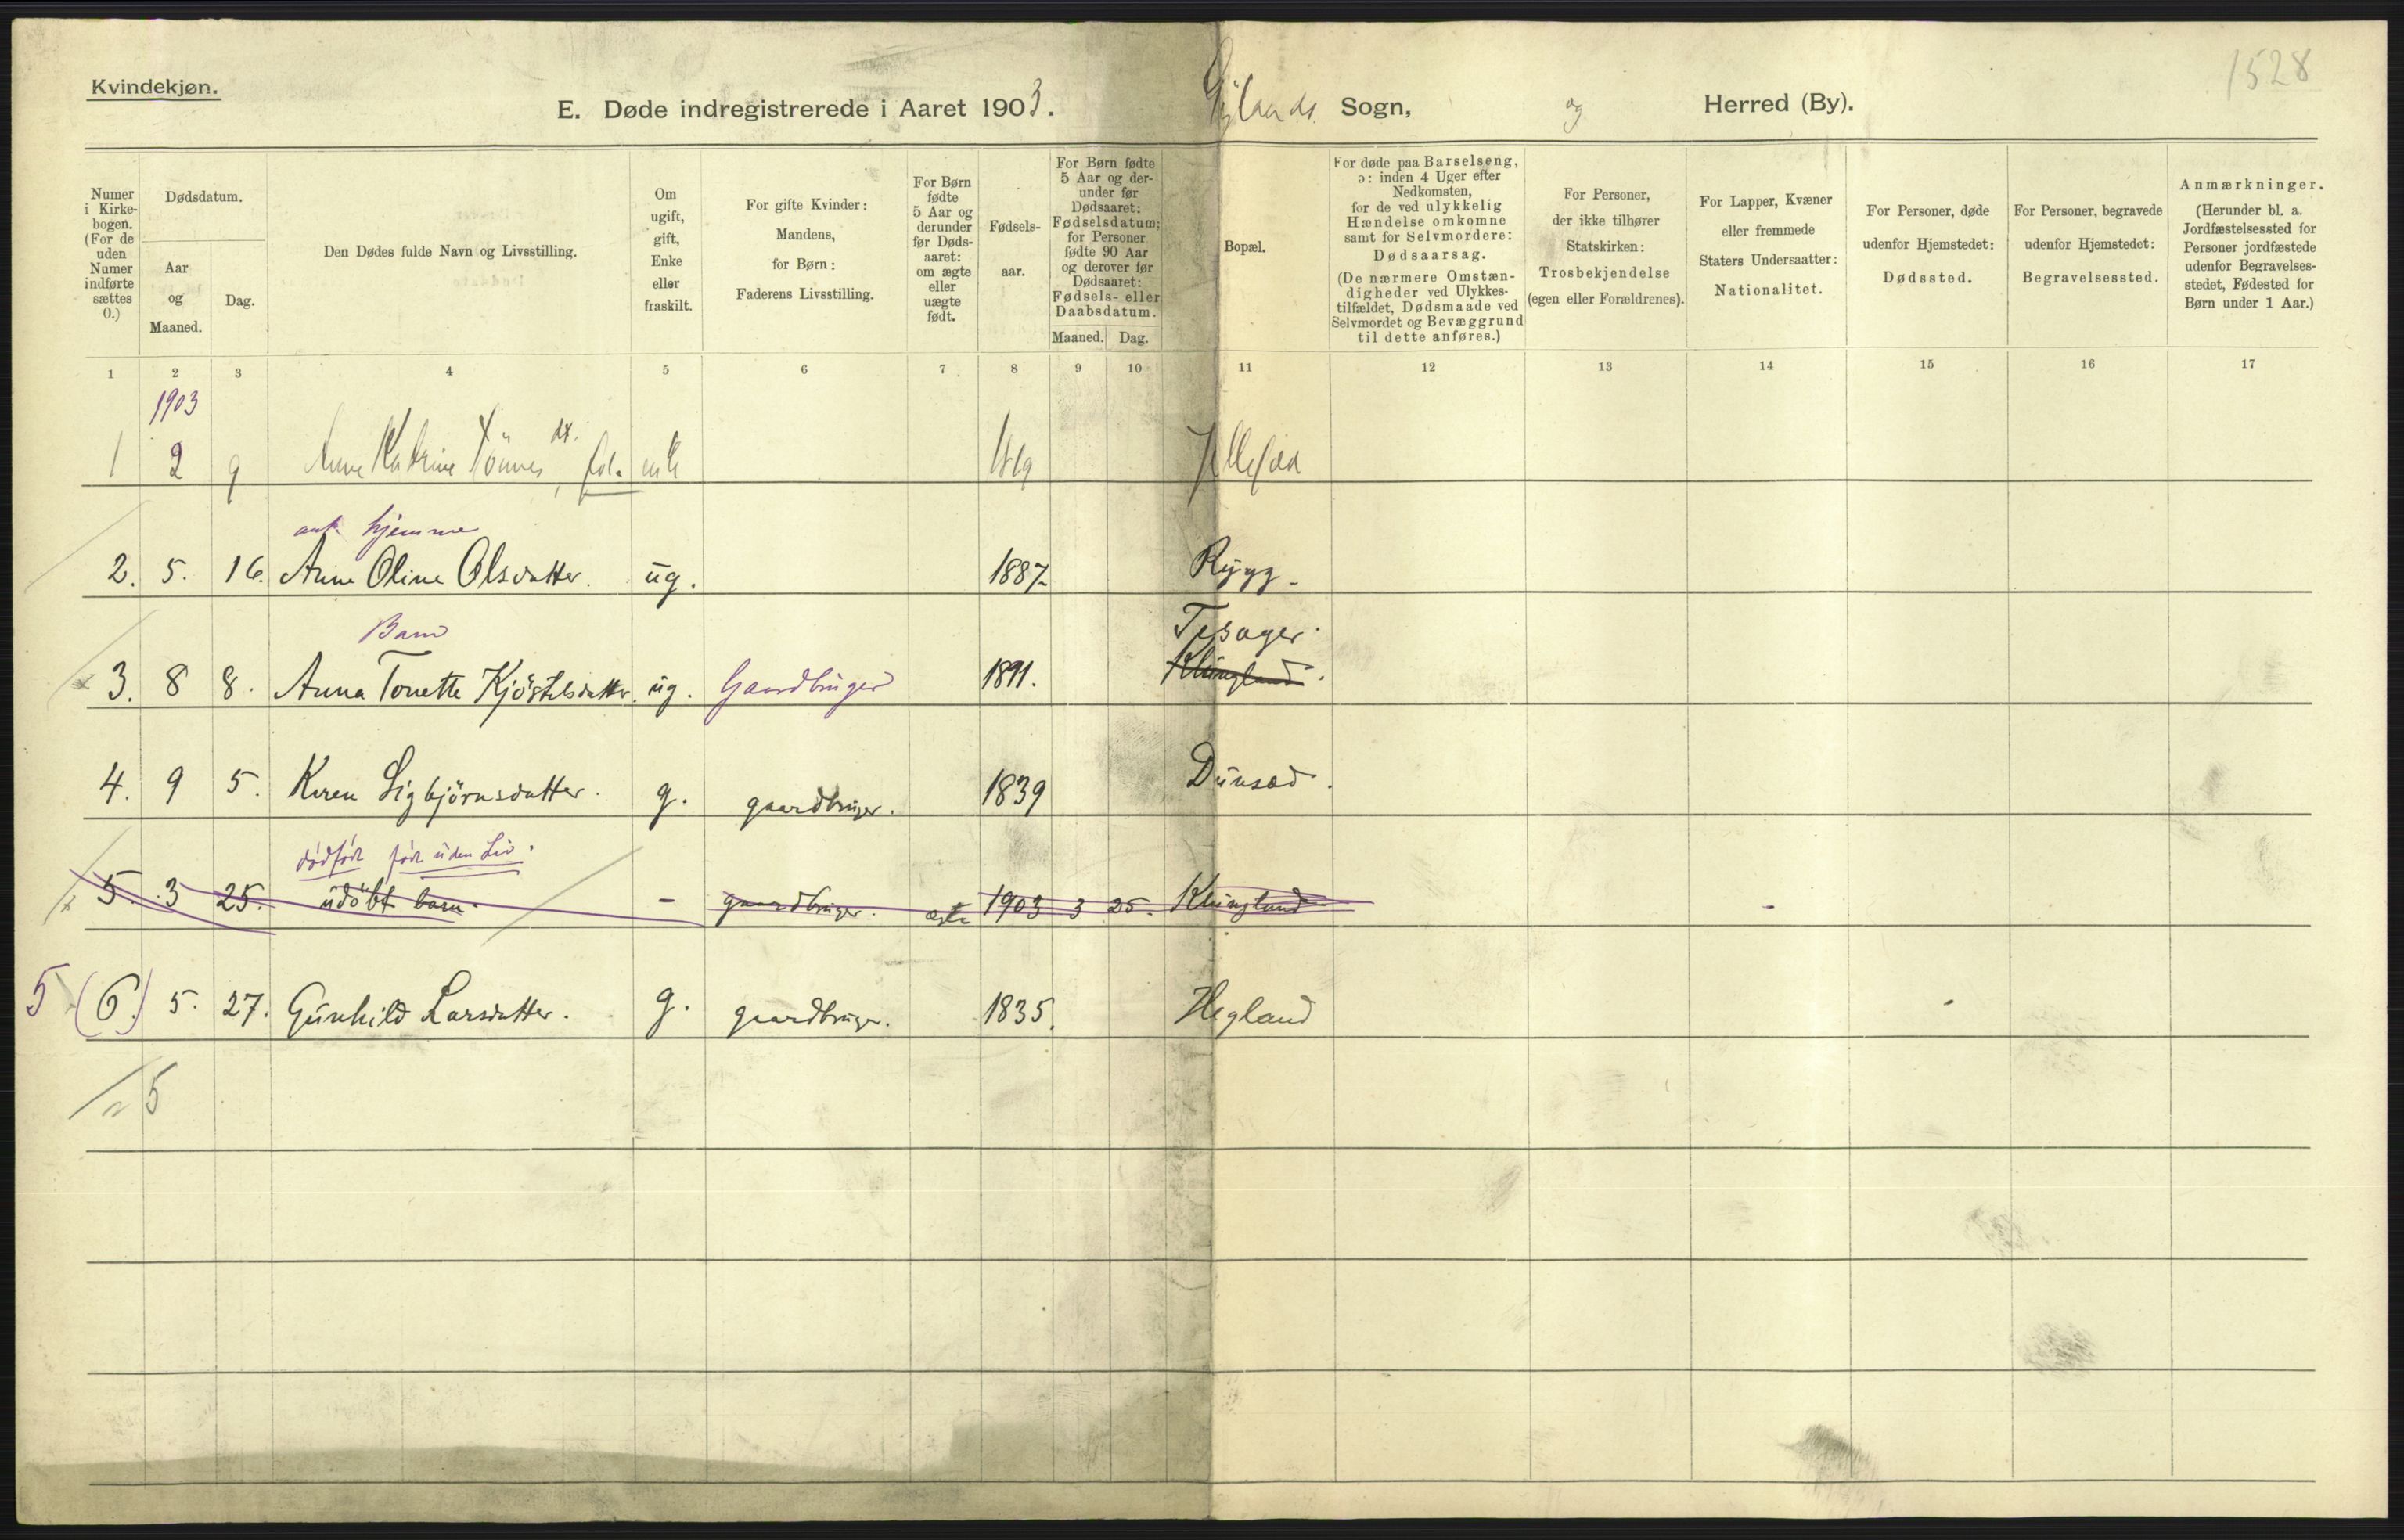 1528
Kvindekjøn.
E. Døde indregistrerede i Aaret 1903. Gylands Sogn, og Herred (By).
Numer i Kirkebogen. (For de uden Numer indførte sættes 0.)
Dødsdatum.
Aar og Maaned.
Dag.
Den Dødes fulde Navn og Livsstilling.
Om ugift, gift, Enke eller fraskilt.
For gifte Kvinder: Mandens, for Børn: Faderens Livsstilling.
For Børn fødte 5 Aar og derunder før Dødsaaret: om ægte eller uægte født.
Fødselsaar.
For Børn fødte 5 Aar og derunder før Dødsaaret: Fødselsdatum; for Personer fødte 90 Aar og derover før Dødsaaret: Fødsels- eller Daabsdatum.
Maaned. Dag.
Bopæl.
For døde paa Barselseng, ɔ: inden 4 Uger efter Nedkomsten, for de ved ulykkelig Hændelse omkomne samt for Selvmordere: Dødsaarsag. (De nærmere Omstændigheder ved Ulykkestilfældet, Dødsmaade ved Selvmordet og Bevæggrund til dette anføres.)
For Personer, der ikke tilhører Statskirken: Trosbekjendelse (egen eller Forældrenes).
For Lapper, Kvæner eller fremmede Staters Undersaatter: Nationalitet.
For Personer, døde udenfor Hjemstedet: Dødssted.
For Personer, begravede udenfor Hjemstedet: Begravelsessted.
Anmærkninger. (Herunder bl. a. Jordfæstelsessted for Personer jordfæstede udenfor Begravelsesstedet, Fødested for Børn under 1 Aar.)
1 2 3 4 5 6 7 8 9 10 11 12 13 14 15 16 17
1903
1 2 9 Anne Katrine Tönnesdt., enke
hjemme
2. 5. 16. Anne Oline Olsdatter. ug. 1887 Rygg
Barn
Tesager.
3. 8 8. Anna Tonette Kjöstelsdatter. ug. Gaardbruger 1891. Klungland.
4. 9 5. Karen Sigbjörnsdatter. g. gaardbruger. 1839 Dunsæd.
dødfødt født uden Liv.
5. 3 25. udöbt barn. - gaardbruger. ægte 1903 3 25. Klungland
5 (6.) 5. 27. Gunhild Larsdatter. g. gaardbruger. 1835. Hegland
5